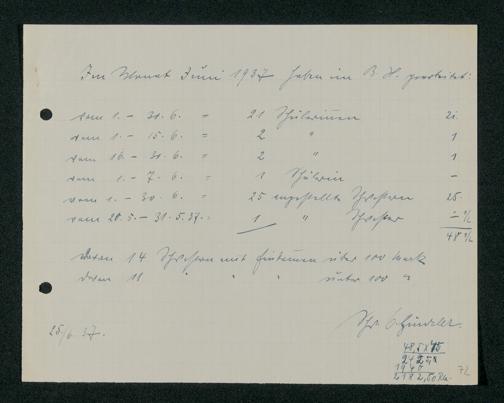 Im Monat Juni 1937 haben im B. H. gearbeitet:
vom 1. – 30. 6. = 21 Schülerinnen 21.
vom 1. – 15. 6. = 2 " 1
vom 16. – 30. 6. = 2 " 1
vom 1. – 7. 6. = 1 Schülerin –
vom 1. – 30. 6. = 25 angestellte Schwestern 25
vom 28. 5. – 31. 5. 37. = 1 " Schwester
48 ½
davon 14 Schwestern mit Einkommen über 100 Mark
davon 11 " " " unter 100 "
Schw.
25/6. 37.
48,5 x 45
242 5
1940
2182,50 Rm.
72